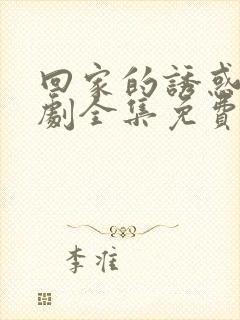 回家的誘惑
劇全集免費
李准